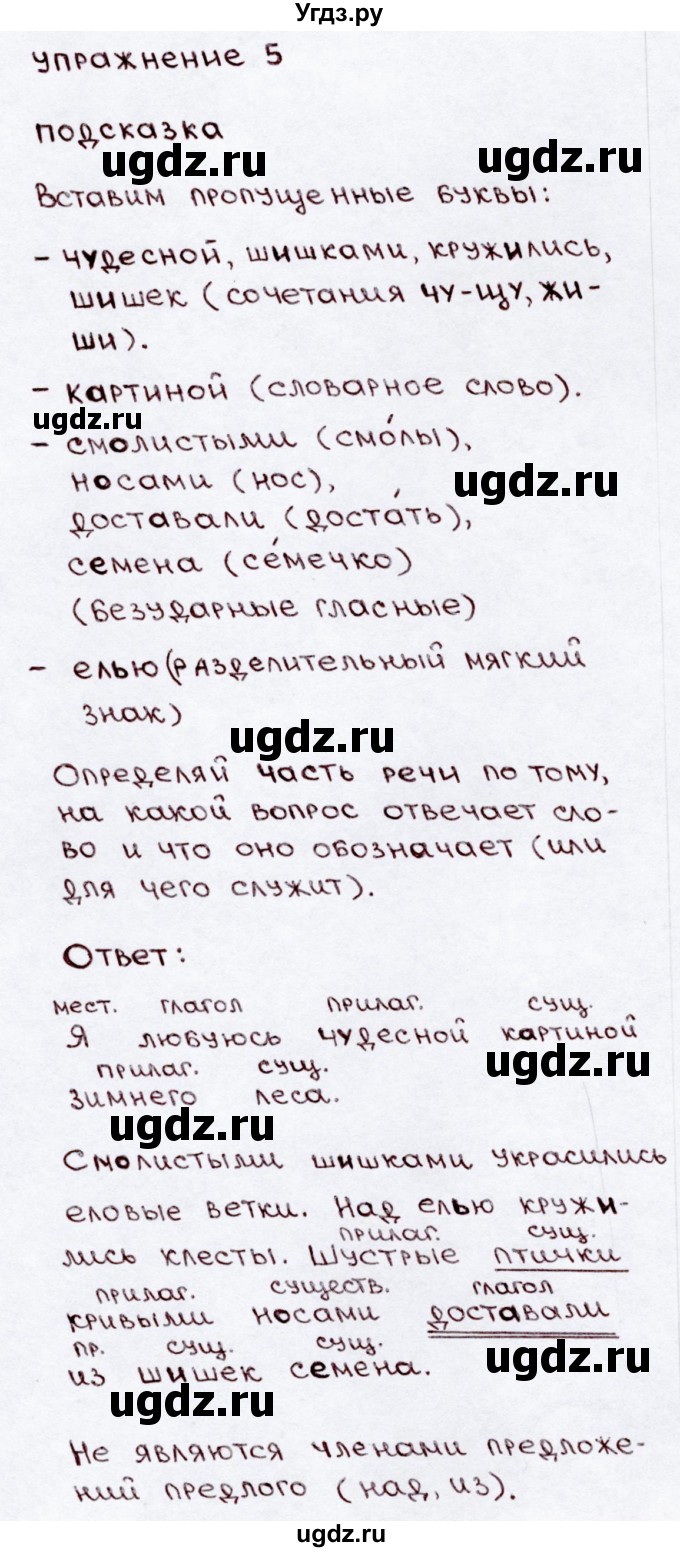 Угдз.ру
упражнение 5
подсказка
ugdz.ru
ugdz.ru
Вставим пропущенные буквы:
- чудесной, шишками, кружились,
шишек (сочетания чу-щу, жи-
ши).
- картиной (словарное слово).
ugdz.ru
- смолистыми (смо́лы),
носами (нос),
ugdz.ru
доставали (доста́ть),
семена (се́мечко)
(безударные гласные)
- елью (разделительный мягкий
знак)
ugdz.ru
Определяй часть речи по тому,
на какой вопрос отвечает сло-
во и что оно обозначает (или
для чего служит).
Ответ:
мест. глагол прилаг. сущ.
Я любуюсь чудесной картиной
ugdz.ru
прилаг. сущ.
зимнего леса.
ugdz.ru
Смолистыми шишками украсились
еловые ветки. Над елью кружи-
прилаг. сущ.
лись клесты. Шустрые птички
прилаг. существ. глагол
кривыми носами доставали
пр. сущ. сущ.
из шишек семена.
ugdz.ru
ugdz.ru
Не являются членами предложе-
ний предлого (над, из).
ugdz.ru